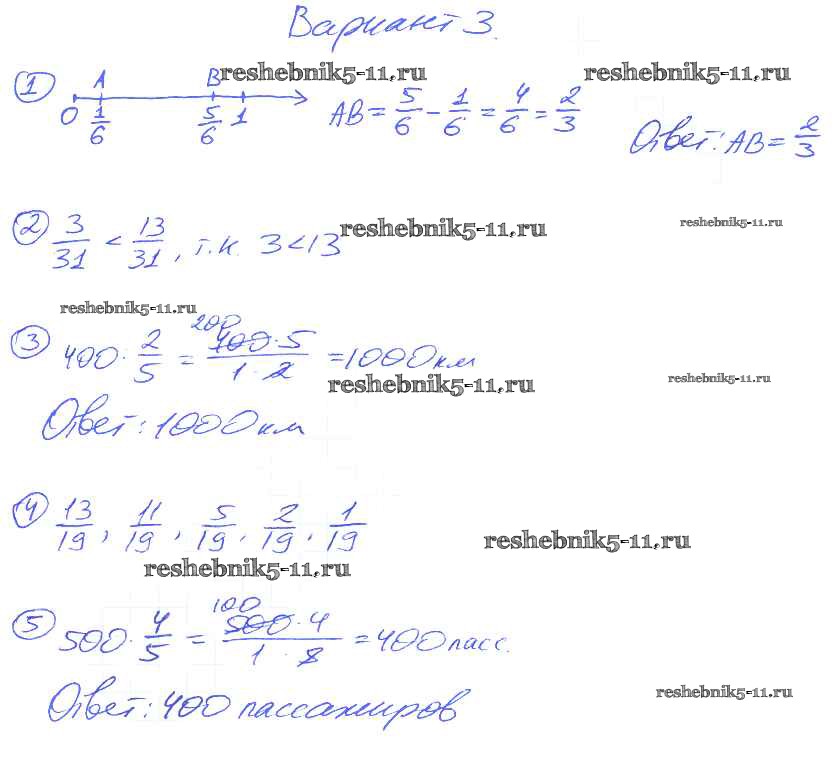 Вариант 3.
reshebnik5-11.ru reshebnik5-11.ru
① A B
0 1/6 5/6 1 AB = 5/6 - 1/6 = 4/6 = 2/3
Ответ: AB = 2/3
② 3/31 < 13/31, т.к. 3 < 13 reshebnik5-11.ru reshebnik5-11.ru
reshebnik5-11.ru
③ 400 · 2/5 = 200 400 · 5 / 1 · 2 = 1000 км
reshebnik5-11.ru reshebnik5-11.ru
Ответ: 1000 км
④ 13/19, 11/19, 5/19, 2/19, 1/19
reshebnik5-11.ru reshebnik5-11.ru
⑤ 500 · 4/5 = 100 500 · 4 / 1 · 5 = 400 пасс.
Ответ: 400 пассажиров
reshebnik5-11.ru